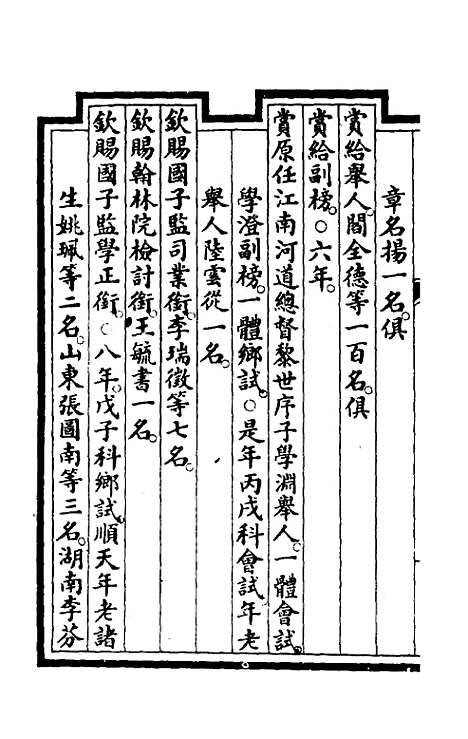 章名揚一名。俱
賞給舉人。閻全德等一百名。俱
賞給副榜。○六年。
賞原任江南河道總督黎世序子學淵舉人。一體會試。
學澄副榜。一體鄉試。○是年丙戌科會試年老
舉人陸雲從一名。
欽賜國子監司業銜。李瑞徵等七名。
欽賜翰林院檢討銜。王毓書一名。
欽賜國子監學正銜。○八年。戊子科鄉試。順天年老諸
生姚珮等二名。山東張圖南等三名。湖南李芬